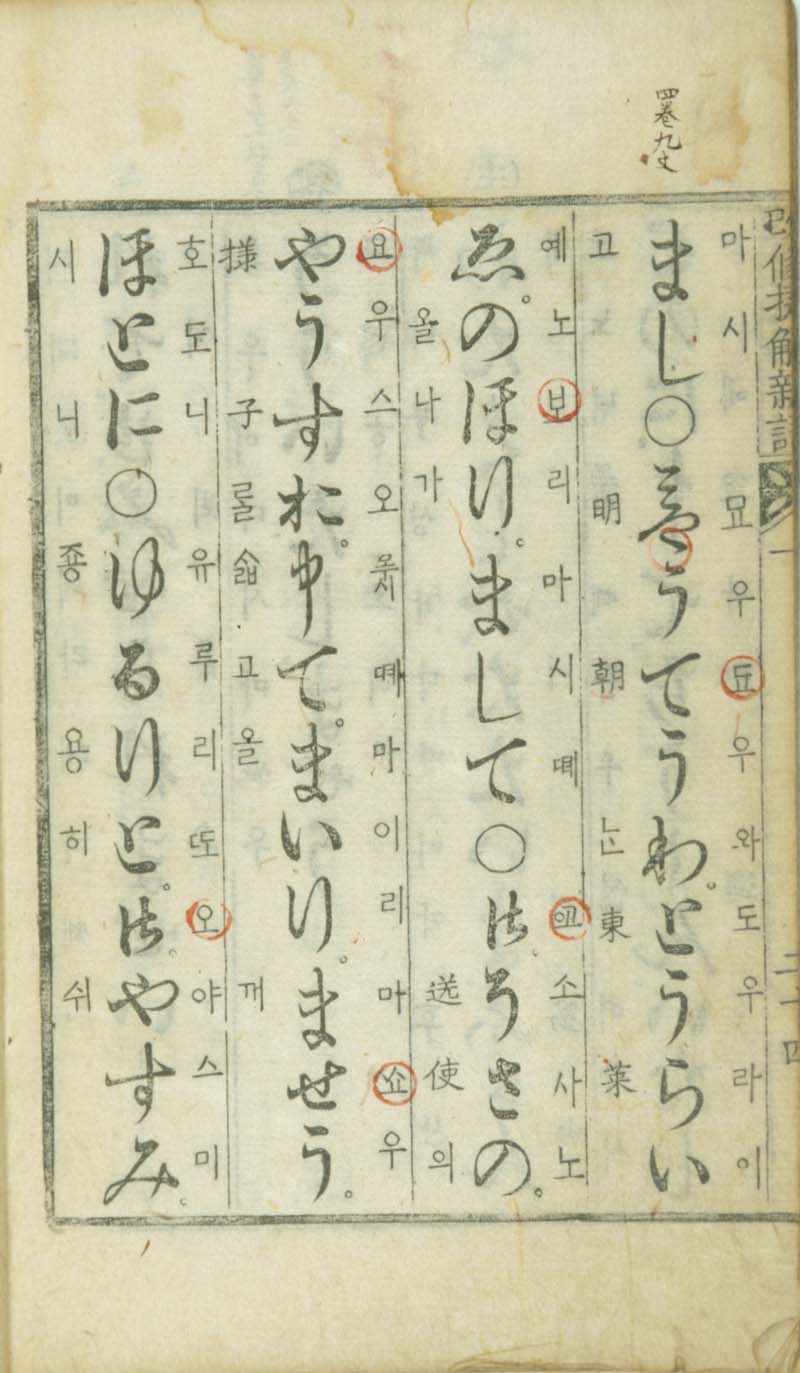 四巻九丈
改修捷解新語 一 二十四
마시묘우됴우와도우라이
まし〇みやうてうわ。とうらい
고明朝ᄂᆞᆫ東萊
예노보리마시뎨소사노
ゑ。のほり。まして〇御そうさの。
올나가送使의
요우스오뎨마이리마쇼우
やうすお。申て。まいり。ませう。
㨾子ᄅᆞᆯᄉᆞᆲ고올께
호도니유루리ᄯᅩ오야스미
ほとに〇ゆるりと。御やすみ。
시니죵용히쉬